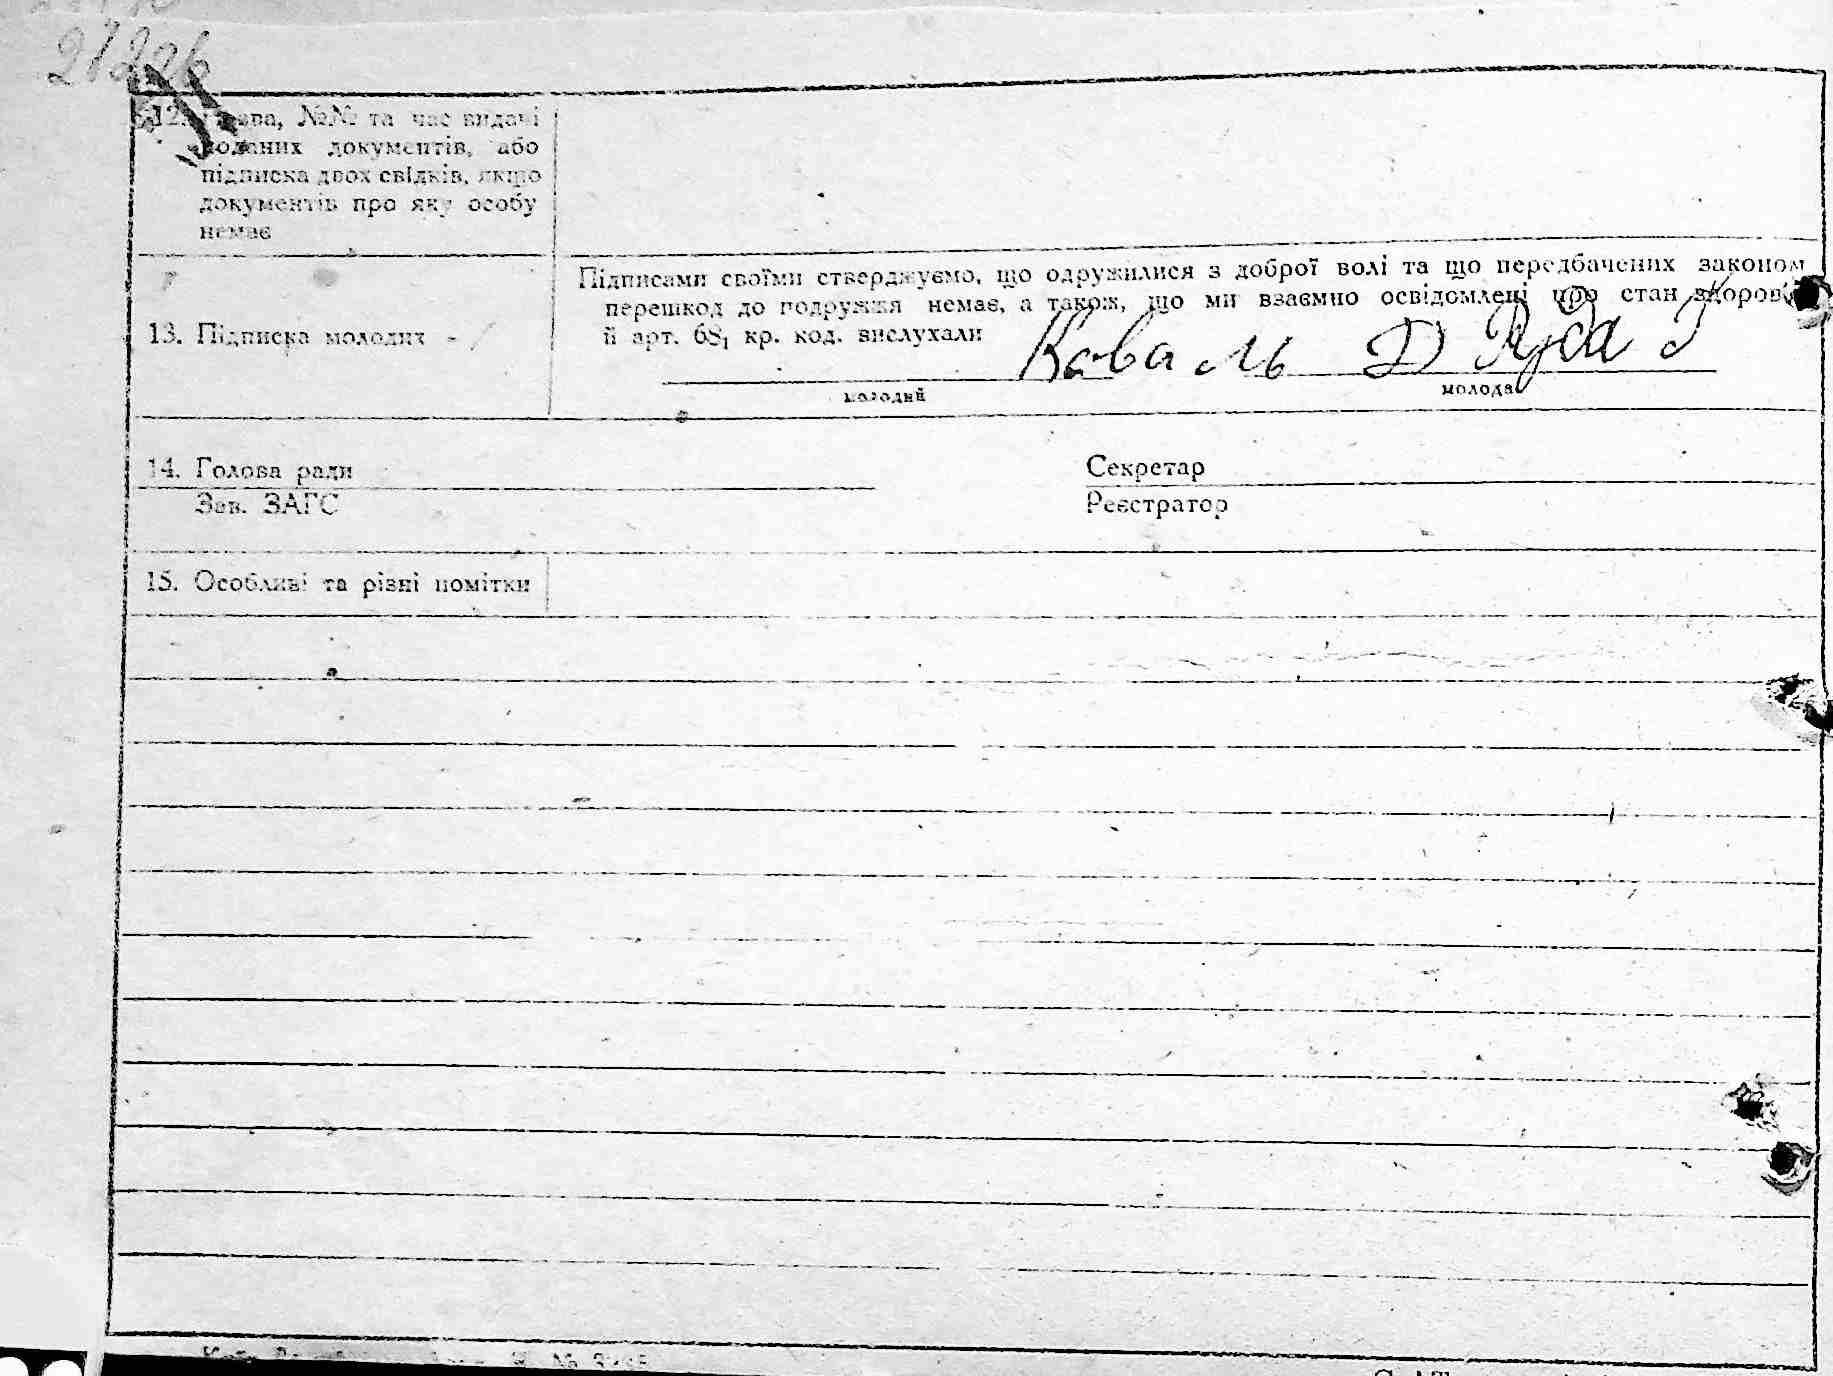 212об
12. Назва, №№ та час видачі
поданих документів, або
підписка двох свідків, якщо
документів про яку особу
немає
Підписами своїми стверджуємо, що одружилися з доброї волі та що передбачених законом
перешкод до подружжя немає, а також, що ми взаємно освідомлені про стан здоров'я
13. Підписка молодих
й арт. 68₁ кр. код. вислухали
Коваль Д Руда Г
молодий молода
14. Голова ради Секретар
Зав. ЗАГС Реєстратор
15. Особливі та різні помітки